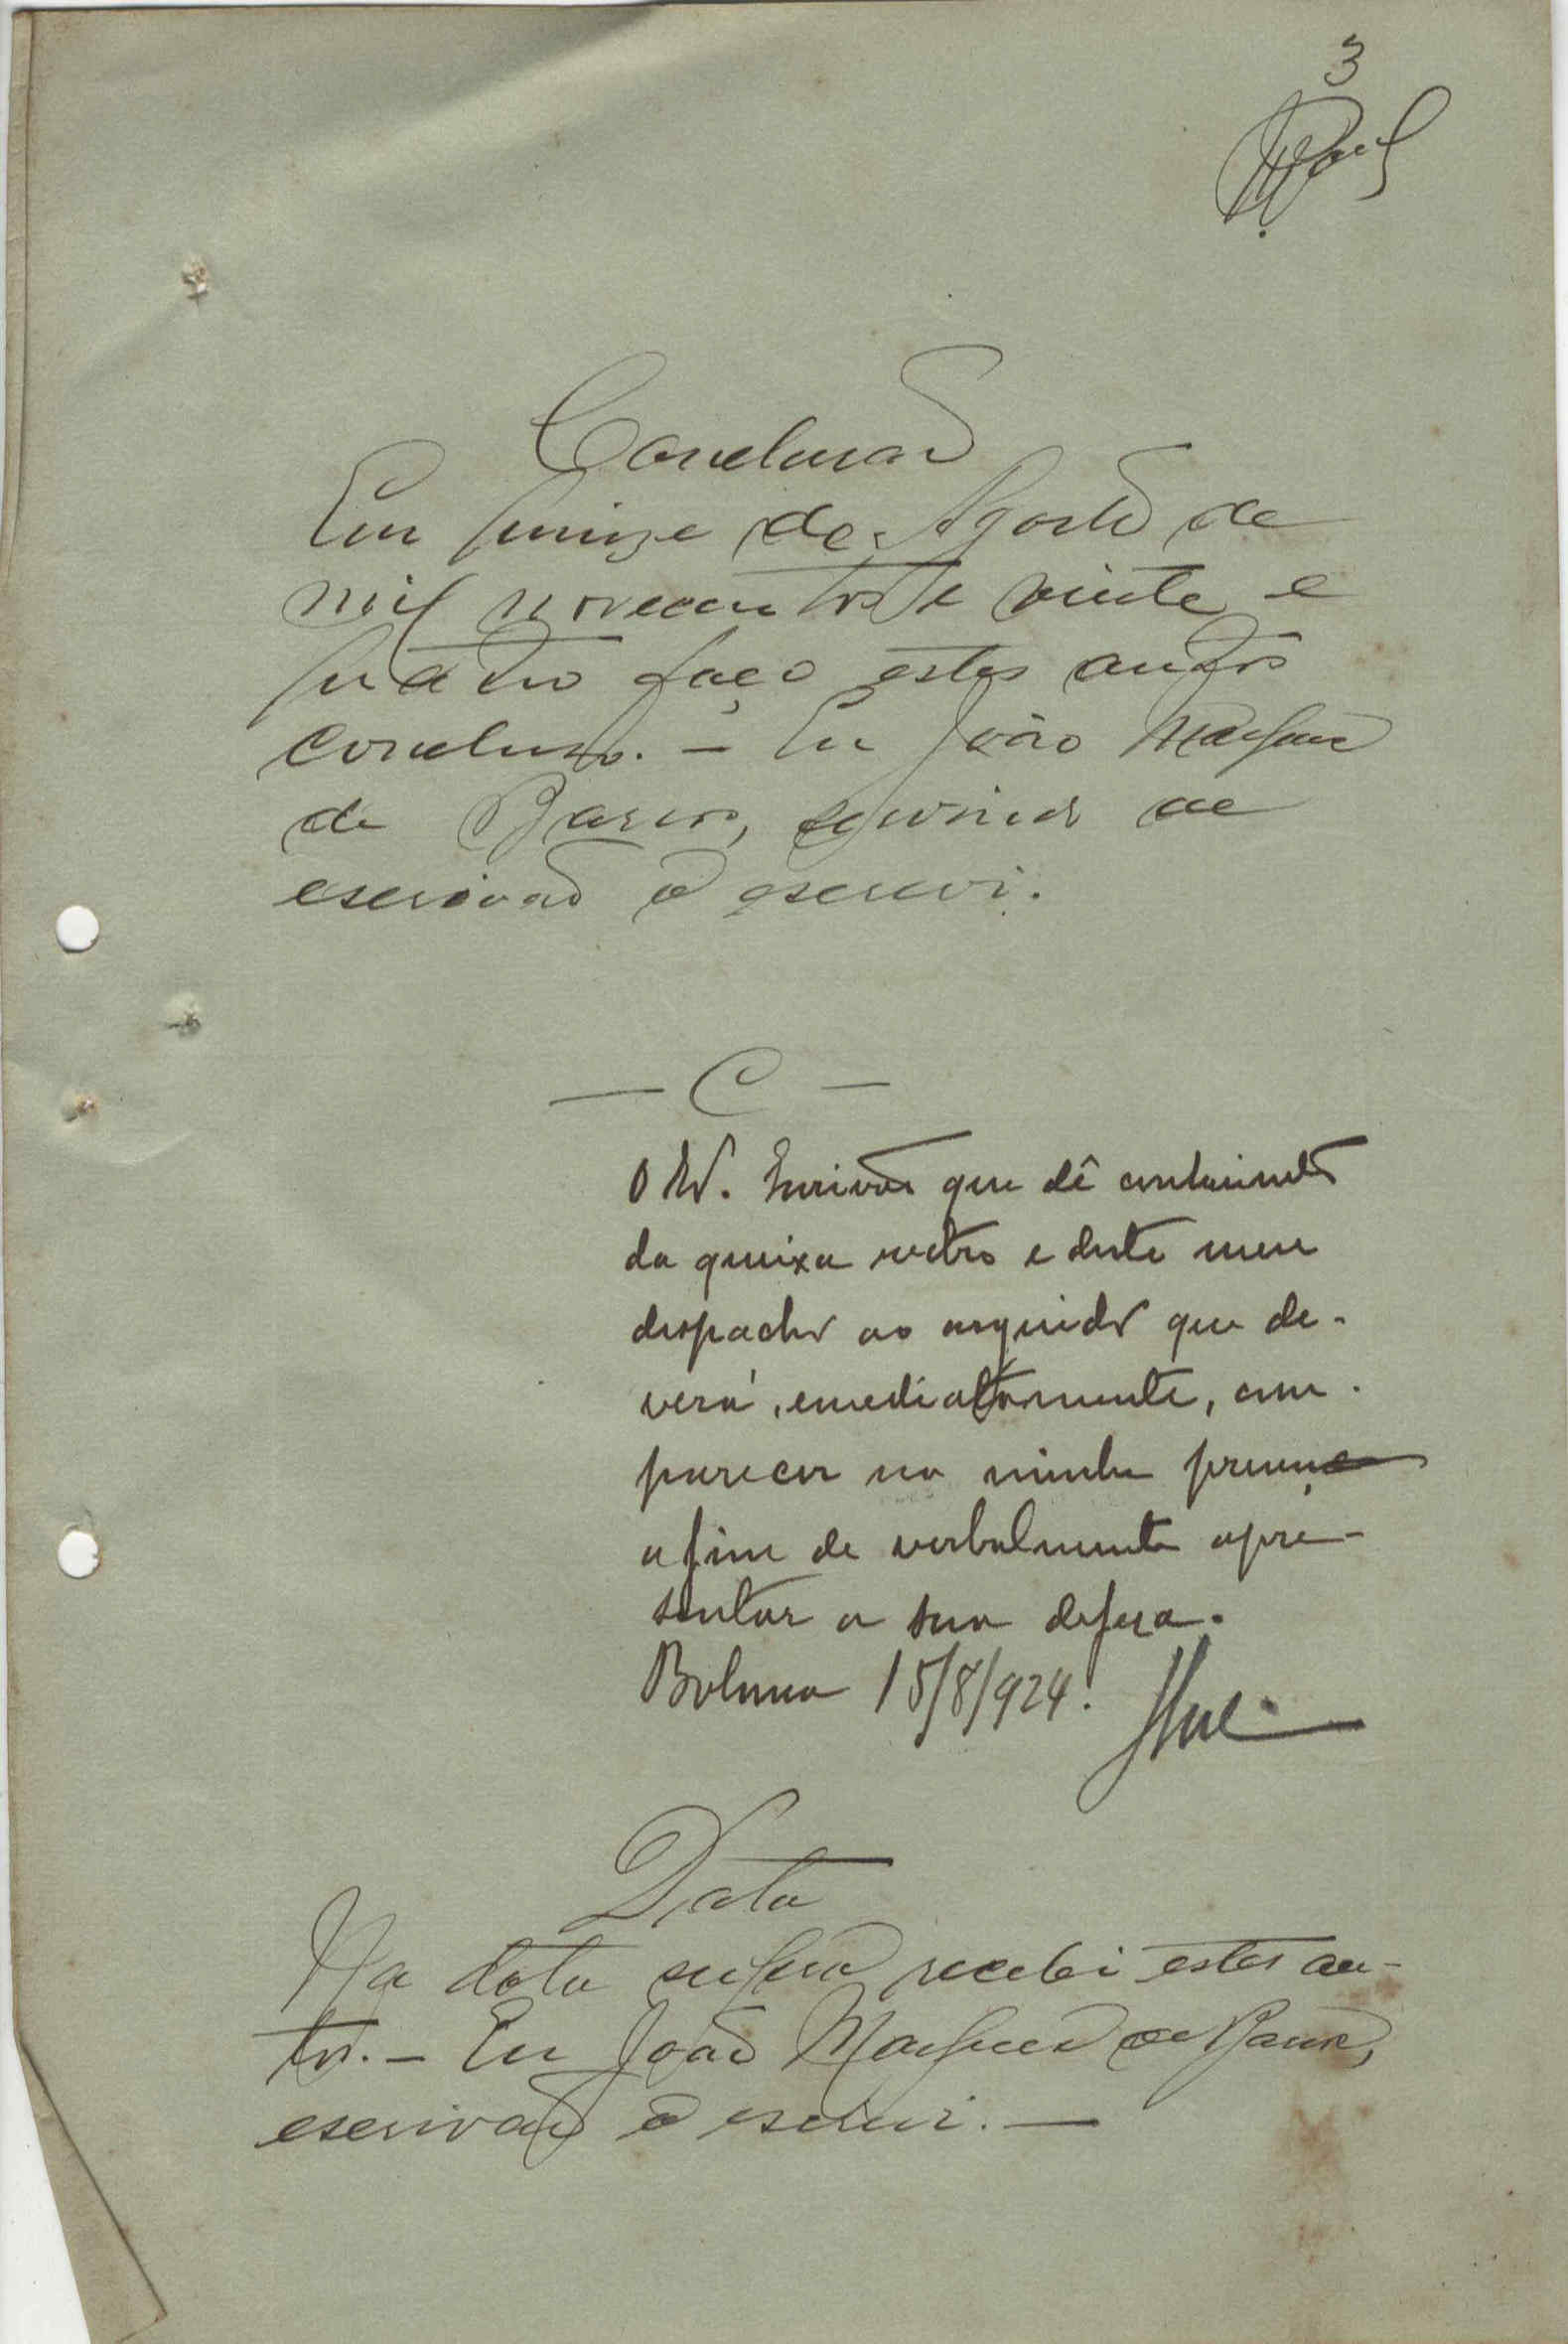 3
Conclusão
Em quinze de Agosto de
mil novecentos e vinte e
quatro faço estes autos
conclusos. – Eu João Marques
de Barros, servindo de
escrivão o escrevi.
— C —
O Sr. Escrivão que dê conhecimento
da queixa retro e deste meu
despacho ao arguido que de-
verá, emediatamente, com-
parecer na minha presença
afim de verbalmente apre-
sentar a sua defesa.
Bolama 15/8/924.
Data
Na data supra recebi estes au-
tos. – Eu João Marques de Barros,
escrivão o escrevi. —